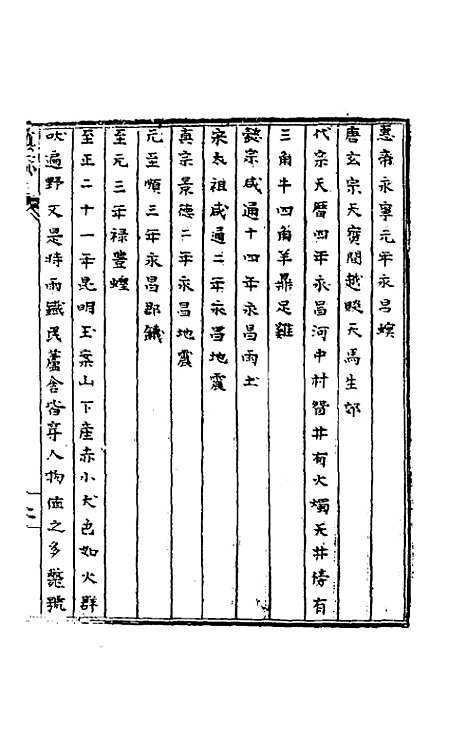 惠帝永寧元年永昌螟
唐玄宗天寳間越睒天馬生郊
代宗天曆四年永昌河中村智井有火燭天井傍有
三角牛四角羊鼎足雞
懿宗咸通十四年永昌雨土
宋太祖咸通二年永昌地震
真宗景德二年永昌地震
元至順三年永昌郡饑
至元三年祿豊蝗
至正二十一年昆明玉案山下産赤小犬色如火群
吠遍野又是時雨鐵民蘆舎皆穿人物值之多斃號